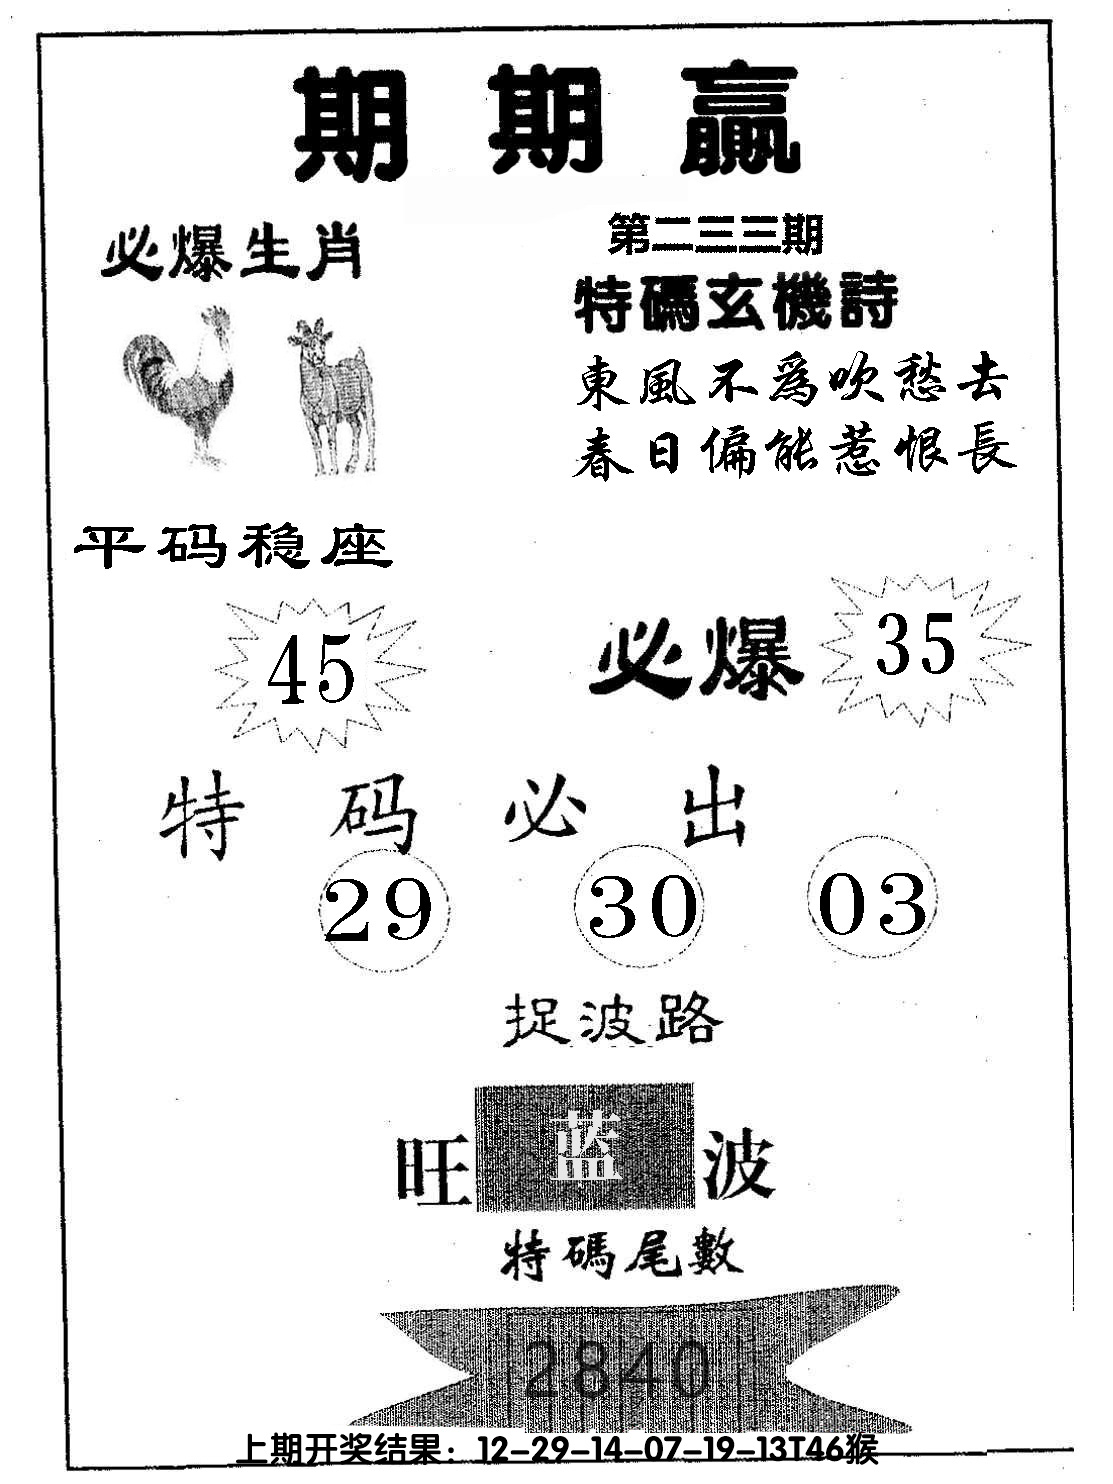 期期赢
必爆生肖
第二三三期
特碼玄機詩
東風不為吹愁去
春日偏能惹恨長
平码稳座
45
必爆 35
特码必出
29 30 03
捉波路
旺蓝波
特碼尾數
2840
上期开奖结果：12-29-14-07-19-13T46猴